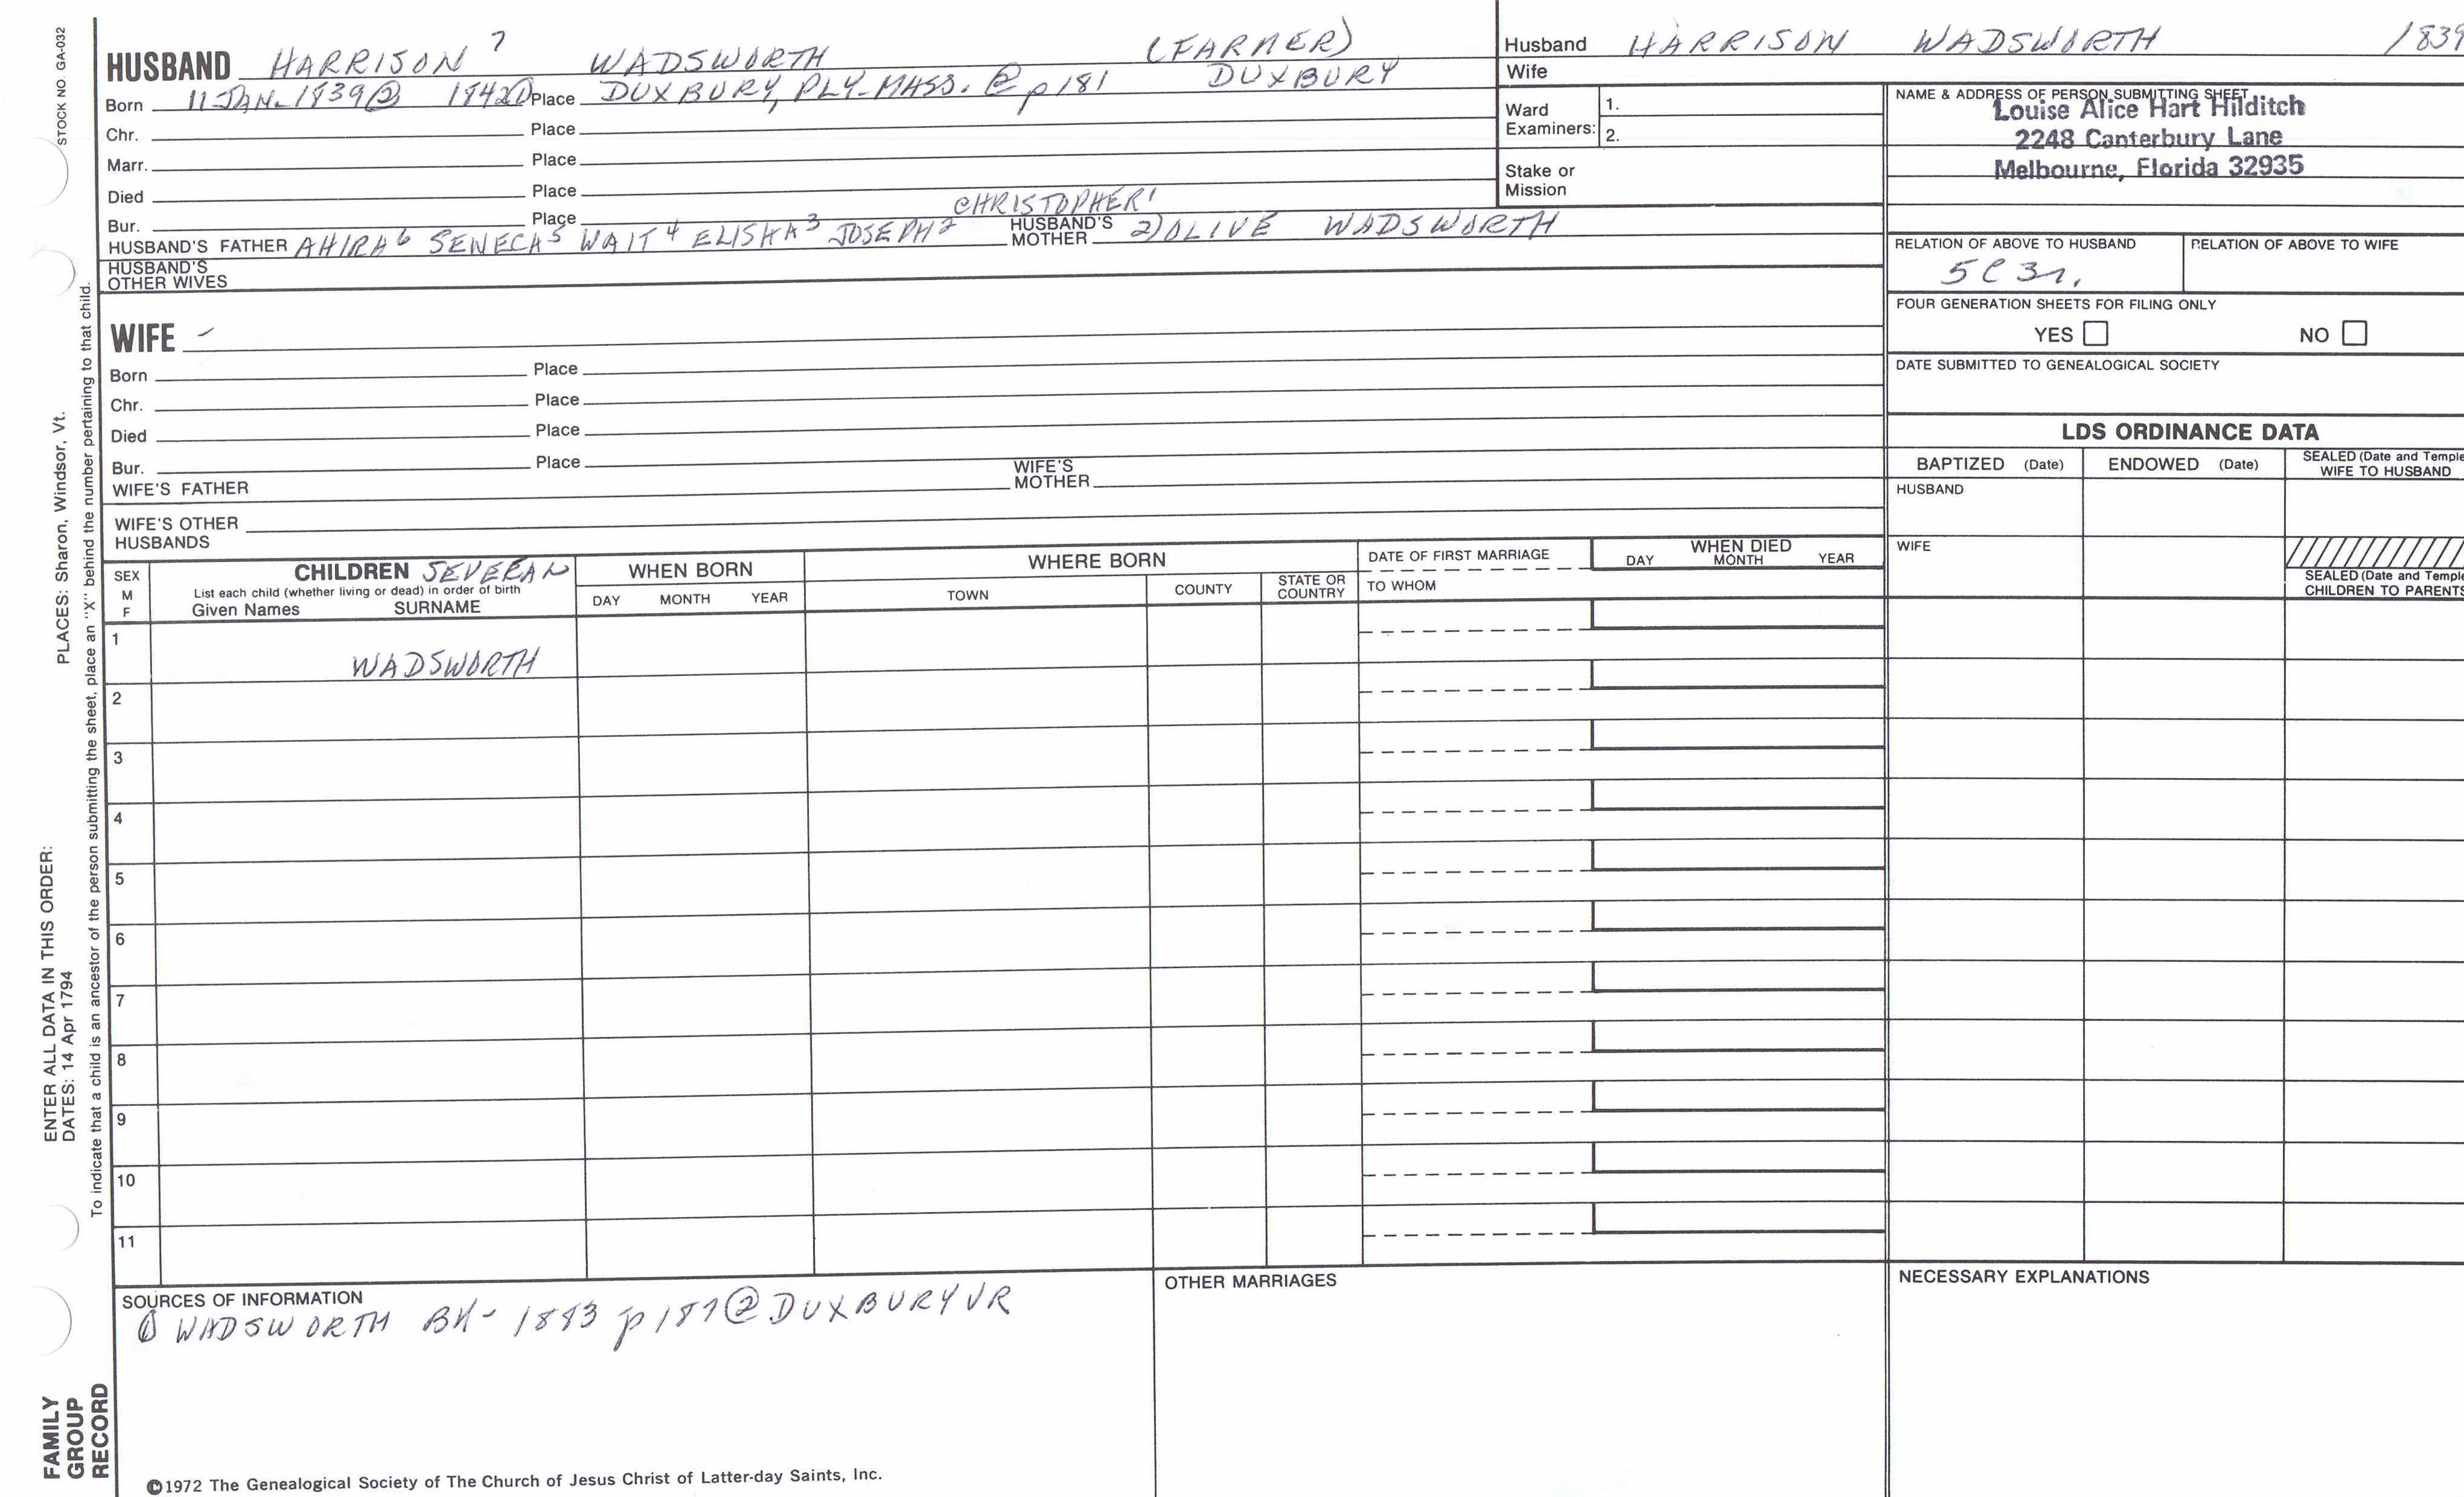 STOCK NO. GA-032
HUSBAND HARRISON 7 WADSWORTH (FARMER)
Born 11-JAN-1839② 1842① Place DUXBURY, PLY-MASS. ② p181 DUXBURY
Chr. Place
Marr. Place
Died Place
Bur. Place CHRISTOPHER 1
HUSBAND'S FATHER AHIRA 6 SENECA 5 WAIT 4 ELISHA 3 JOSEPH 2 HUSBAND'S MOTHER 2) OLIVE WADSWORTH
HUSBAND'S OTHER WIVES
WIFE -
Born Place
Chr. Place
Died Place
Bur. Place
WIFE'S FATHER WIFE'S MOTHER
WIFE'S OTHER HUSBANDS
Husband HARRISON WADSWORTH 1839
Wife
Ward Examiners: 1.
2.
Stake or Mission
NAME & ADDRESS OF PERSON SUBMITTING SHEET
Louise Alice Hart Hilditch
2248 Canterbury Lane
Melbourne, Florida 32935
RELATION OF ABOVE TO HUSBAND RELATION OF ABOVE TO WIFE
5C 3r.
FOUR GENERATION SHEETS FOR FILING ONLY
YES NO
DATE SUBMITTED TO GENEALOGICAL SOCIETY
LDS ORDINANCE DATA
BAPTIZED (Date) ENDOWED (Date) SEALED (Date and Temple) WIFE TO HUSBAND
HUSBAND
WIFE
SEALED (Date and Temple) CHILDREN TO PARENTS
SEX M F
CHILDREN SEVERAN
List each child (whether living or dead) in order of birth
Given Names SURNAME
WHEN BORN
DAY MONTH YEAR
WHERE BORN
TOWN COUNTY STATE OR COUNTRY
DATE OF FIRST MARRIAGE
TO WHOM
WHEN DIED
DAY MONTH YEAR
1
WADSWORTH
2
3
4
5
6
7
8
9
10
11
SOURCES OF INFORMATION
① WADSWORTH BK- 1883 p187 ② DUXBURY VR
OTHER MARRIAGES
NECESSARY EXPLANATIONS
©1972 The Genealogical Society of The Church of Jesus Christ of Latter-day Saints, Inc.
FAMILY
GROUP
RECORD
ENTER ALL DATA IN THIS ORDER:
DATES: 14 Apr 1794
PLACES: Sharon, Windsor, Vt.
To indicate that a child is an ancestor of the person submitting the sheet, place an "X" behind the number pertaining to that child.